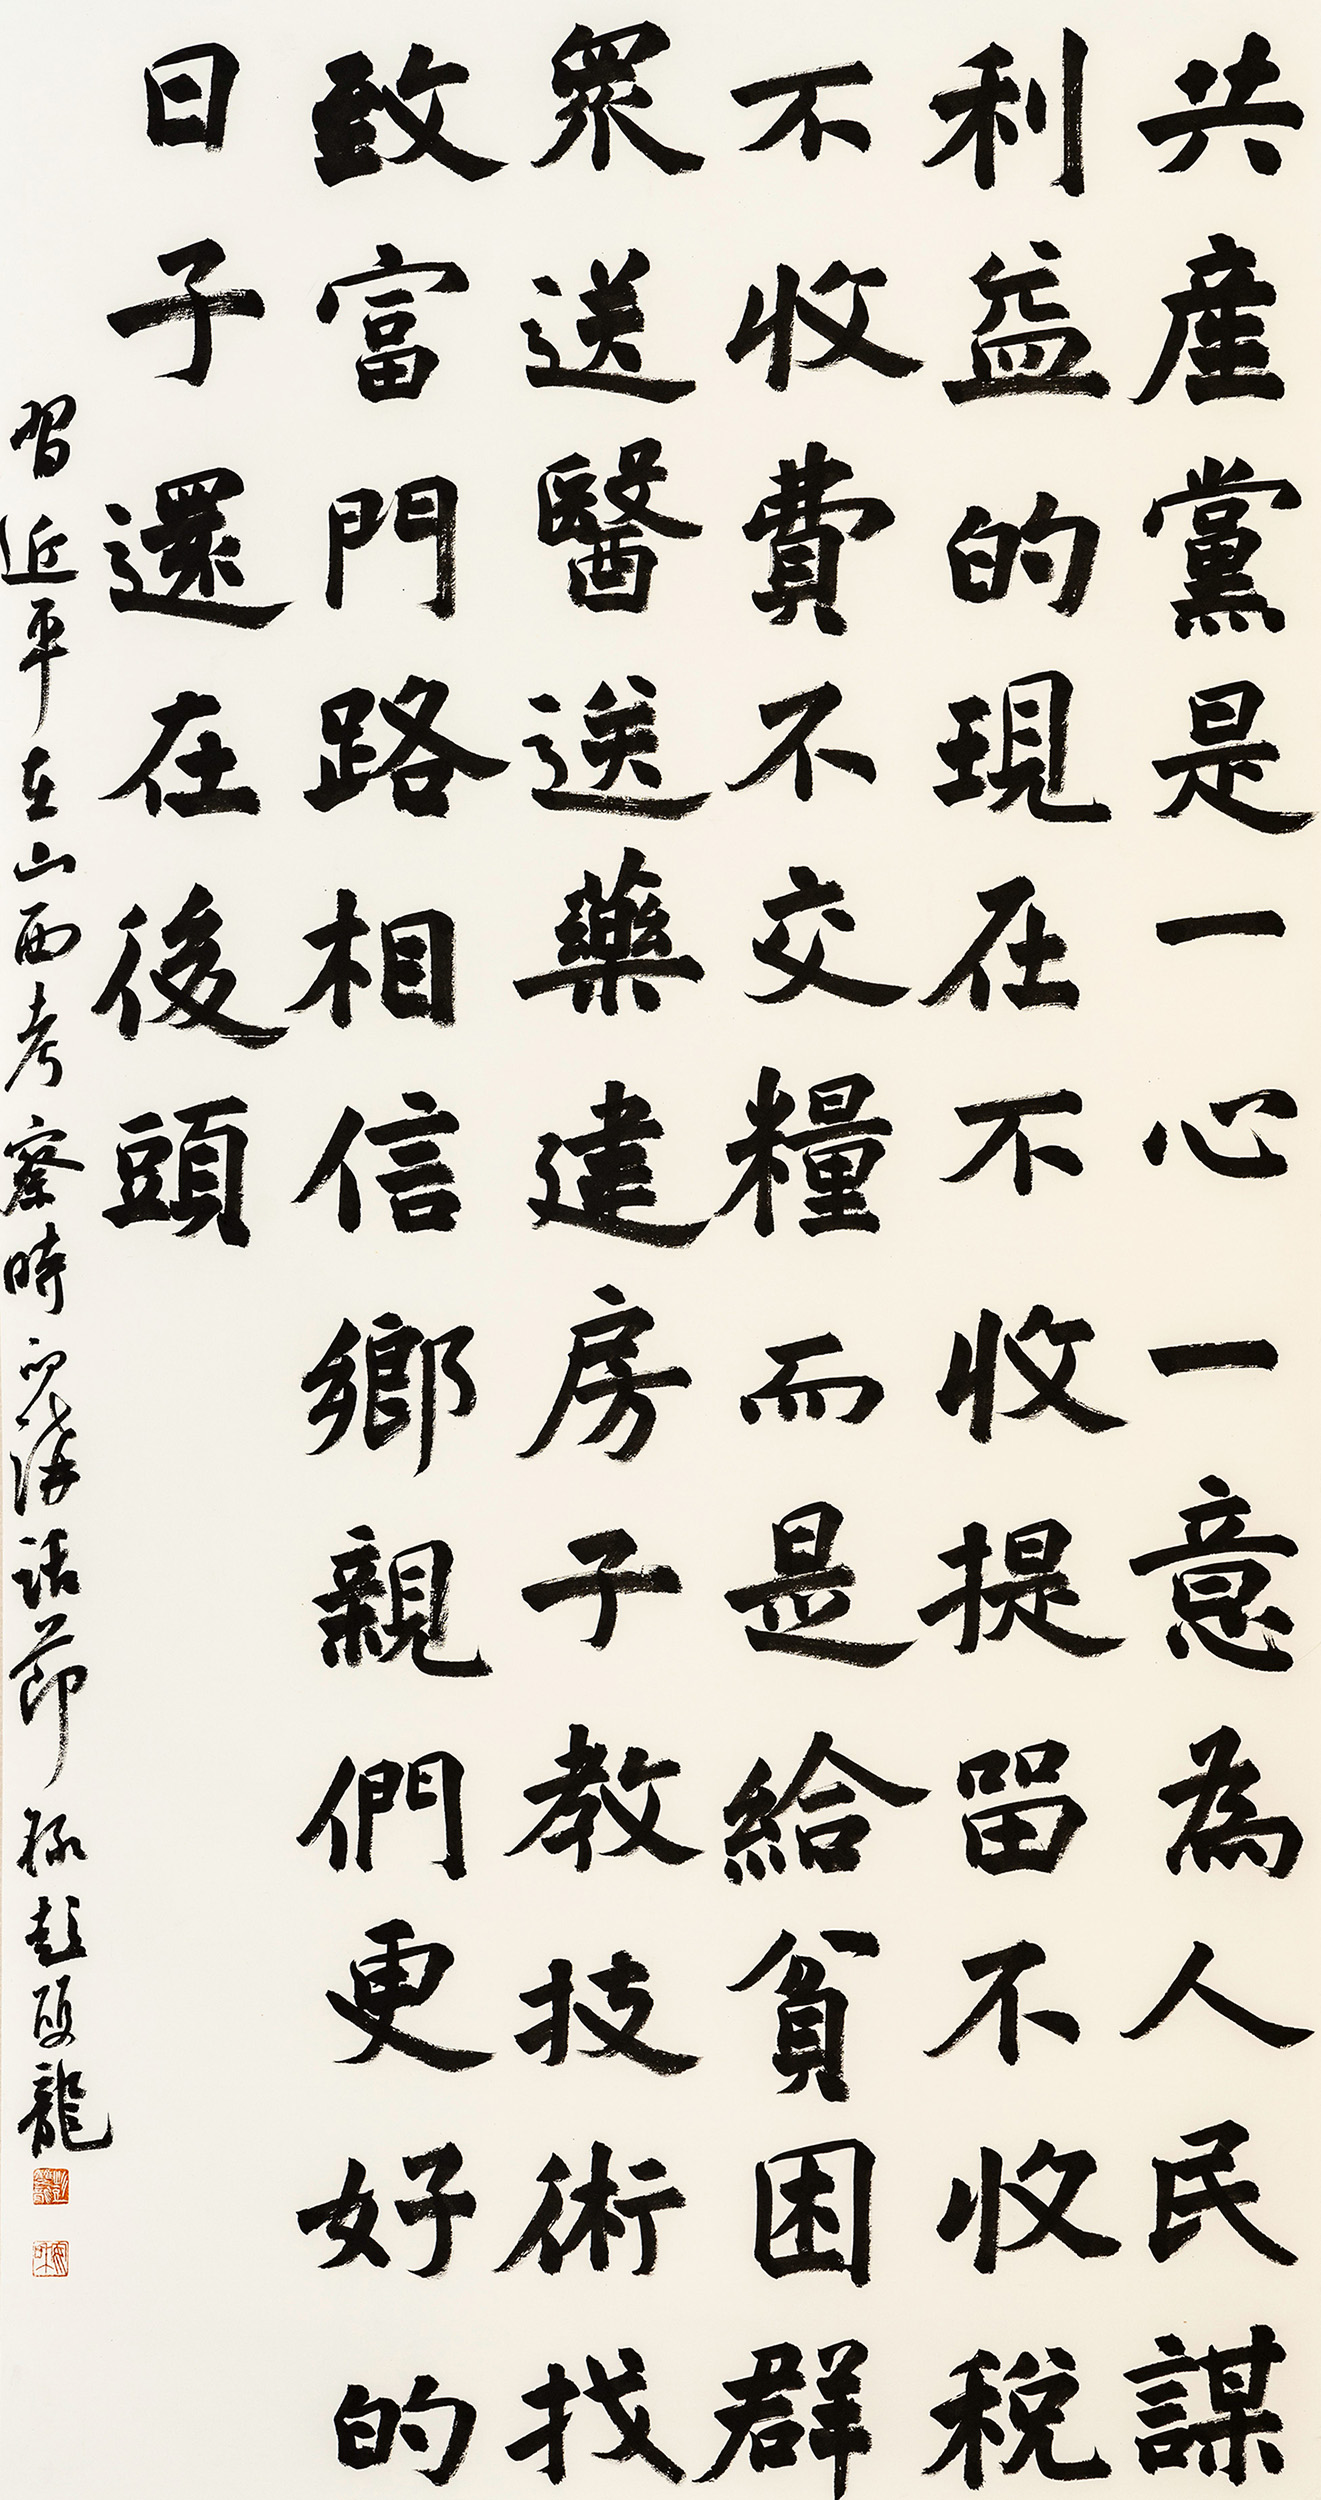 共產黨是一心一意為人民謀
利益的現在不收提留不收税
不收費不交糧而是給貧困群
衆送醫送藥建房子教技術找
致富門路相信鄉親們更好的
日子還在後頭
習近平在山西考察時的講話節録 彭頤龍